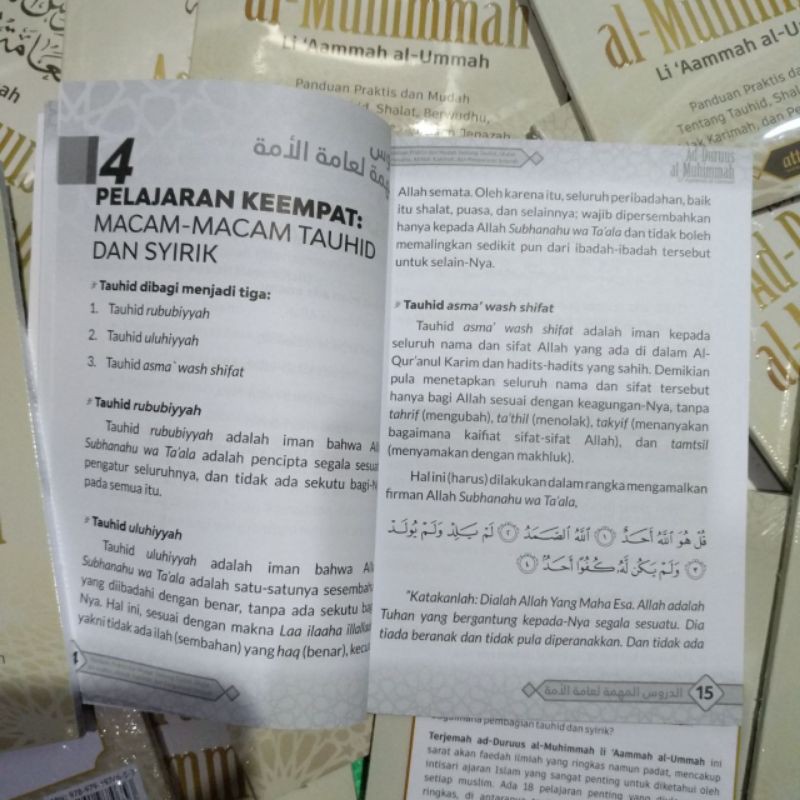 al-Muhimmah
Li 'Aammah al-Ummah
Panduan Praktis dan Mudah
Shalat, Berwudhu,
Jenazah
al-Muhimmah
Li 'Aammah al-U
Panduan Praktis dan
Tentang Tauhid, Shal
lak Karimah, dan Pe
4
لعامة الأمة
PELAJARAN KEEMPAT:
MACAM-MACAM TAUHID
DAN SYIRIK
Tauhid dibagi menjadi tiga:
1. Tauhid rububiyyah
2. Tauhid uluhiyyah
3. Tauhid asma` wash shifat
Tauhid rububiyyah
Tauhid rububiyyah adalah iman bahwa Al
Subhanahu wa Ta'ala adalah pencipta segala sesua
pengatur seluruhnya, dan tidak ada sekutu bagi-N
pada semua itu.
Tauhid uluhiyyah
Tauhid uluhiyyah adalah iman bahwa Alla
Subhanahu wa Ta'ala adalah satu-satunya sesembah
yang diibadahi dengan benar, tanpa ada sekutu bag
Nya. Hal ini, sesuai dengan makna Laa ilaaha illallaa
yakni tidak ada ilah (sembahan) yang haq (benar), kecu
Ad-Duruus
al-Muhimmah
Allah semata. Oleh karena itu, seluruh peribadahan, baik
itu shalat, puasa, dan selainnya; wajib dipersembahkan
hanya kepada Allah Subhanahu wa Ta'ala dan tidak boleh
memalingkan sedikit pun dari ibadah-ibadah tersebut
untuk selain-Nya.
Tauhid asma' wash shifat
Tauhid asma' wash shifat adalah iman kepada
seluruh nama dan sifat Allah yang ada di dalam Al-
Qur'anul Karim dan hadits-hadits yang sahih. Demikian
pula menetapkan seluruh nama dan sifat tersebut
hanya bagi Allah sesuai dengan keagungan-Nya, tanpa
tahrif (mengubah), ta'thil (menolak), takyif (menanyakan
bagaimana kaifiat sifat-sifat Allah), dan tamtsil
(menyamakan dengan makhluk).
Hal ini (harus) dilakukan dalam rangka mengamalkan
firman Allah Subhanahu wa Ta'ala,
قُلْ هُوَ اللَّهُ أَحَدٌ ۝١ اللَّهُ الصَّمَدُ ۝٢ لَمْ يَلِدْ وَلَمْ يُولَدْ
۝٣ وَلَمْ يَكُن لَّهُ كُفُوًا أَحَدٌ ۝٤
"Katakanlah: Dialah Allah Yang Maha Esa. Allah adalah
Tuhan yang bergantung kepada-Nya segala sesuatu. Dia
tiada beranak dan tidak pula diperanakkan. Dan tidak ada
الدروس المهمة لعامة الأمة 15
bagaimana pembagian tauhid dan syirik?
Terjemah ad-Duruus al-Muhimmah li 'Aammah al-Ummah ini
sarat akan faedah ilmiah yang ringkas namun padat, mencakup
intisari ajaran Islam yang sangat penting untuk diketahui oleh
setiap muslim. Ada 18 pelajaran penting yang
ringkas, di antaranya